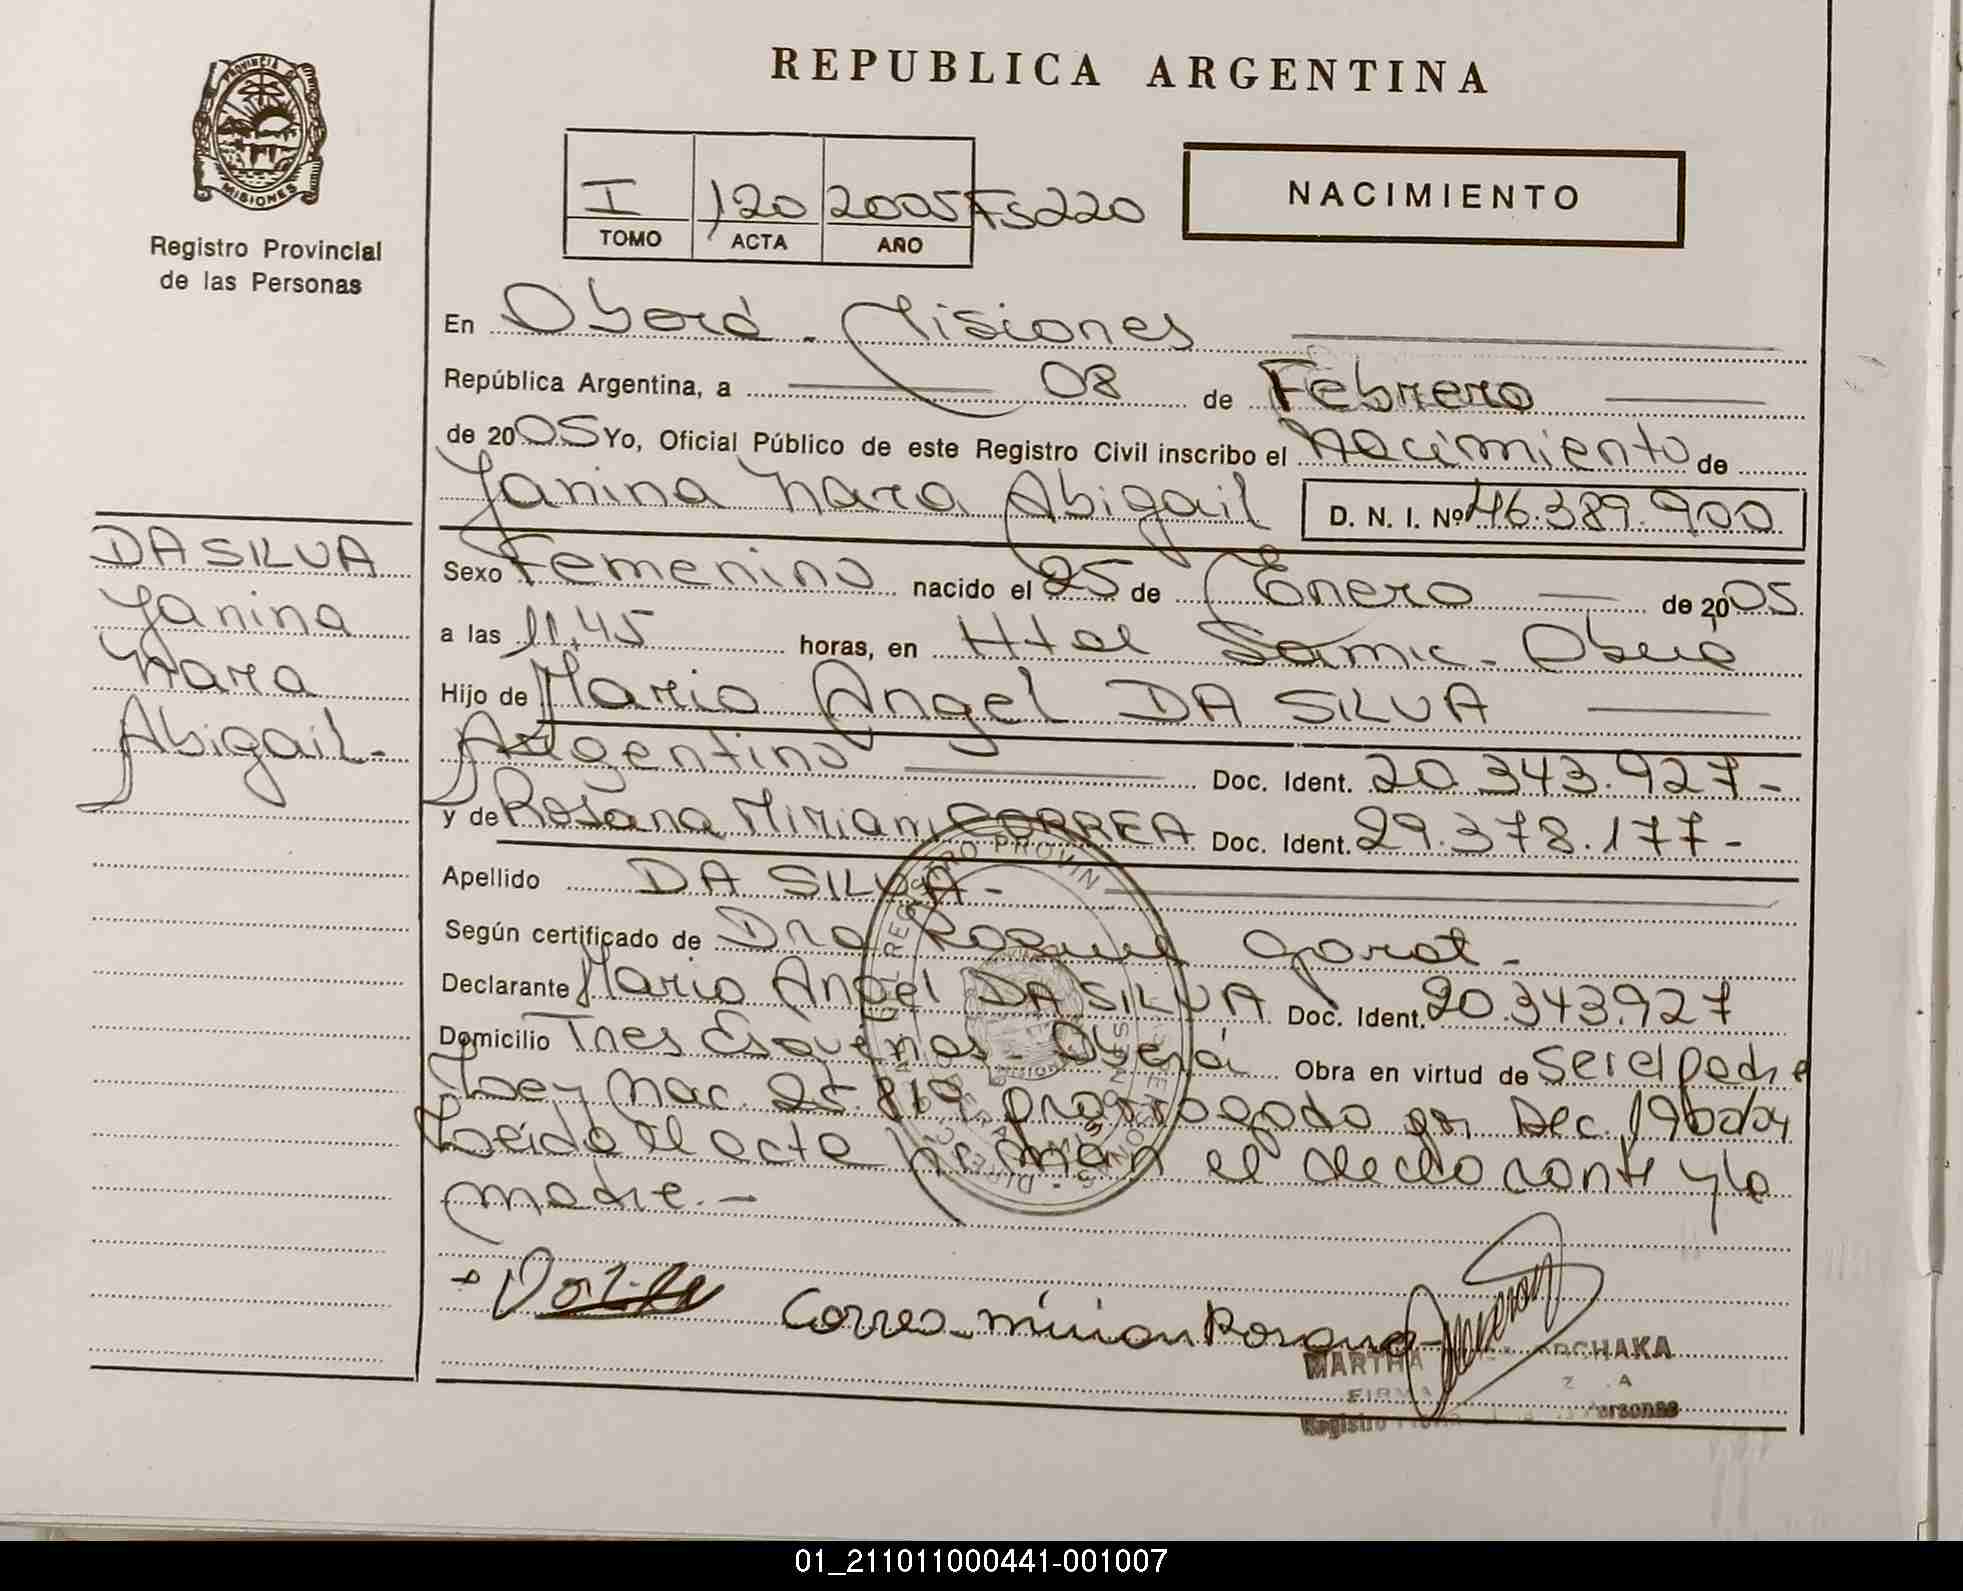 REPUBLICA ARGENTINA
PROVINCIA DE
MISIONES
Registro Provincial
de las Personas
I 120 2005 Fs 220
TOMO ACTA AÑO
NACIMIENTO
En Oberá - Misiones
República Argentina, a 08 de Febrero
de 2005 Yo, Oficial Público de este Registro Civil inscribo el Nacimiento de
Yanina Nara Abigail D. N. I. Nº 46.389.900
DA SILVA
Yanina
Nara
Abigail.-
Sexo Femenino nacido el 25 de Enero de 2005
a las 11,45 horas, en Htal Samic - Oberá
Hijo de Mario Angel DA SILVA
Argentino Doc. Ident. 20.343.927-
y de Rosana Miriam CORREA Doc. Ident. 29.378.177-
Apellido DA SILVA-
Según certificado de Dra Raquel -
Declarante Mario Angel DA SILVA Doc. Ident. 20.343.927
Domicilio Tres Esquinas - Oberá Obra en virtud de ser el padre
Ley Nac. 25.819 prorrogado por Dec. 1960/04
Leído el acta firman el declarante y la
madre.-
Correa Mirian Rosana
MARTHA
FIRMA
Registro Personas
01_211011000441-001007